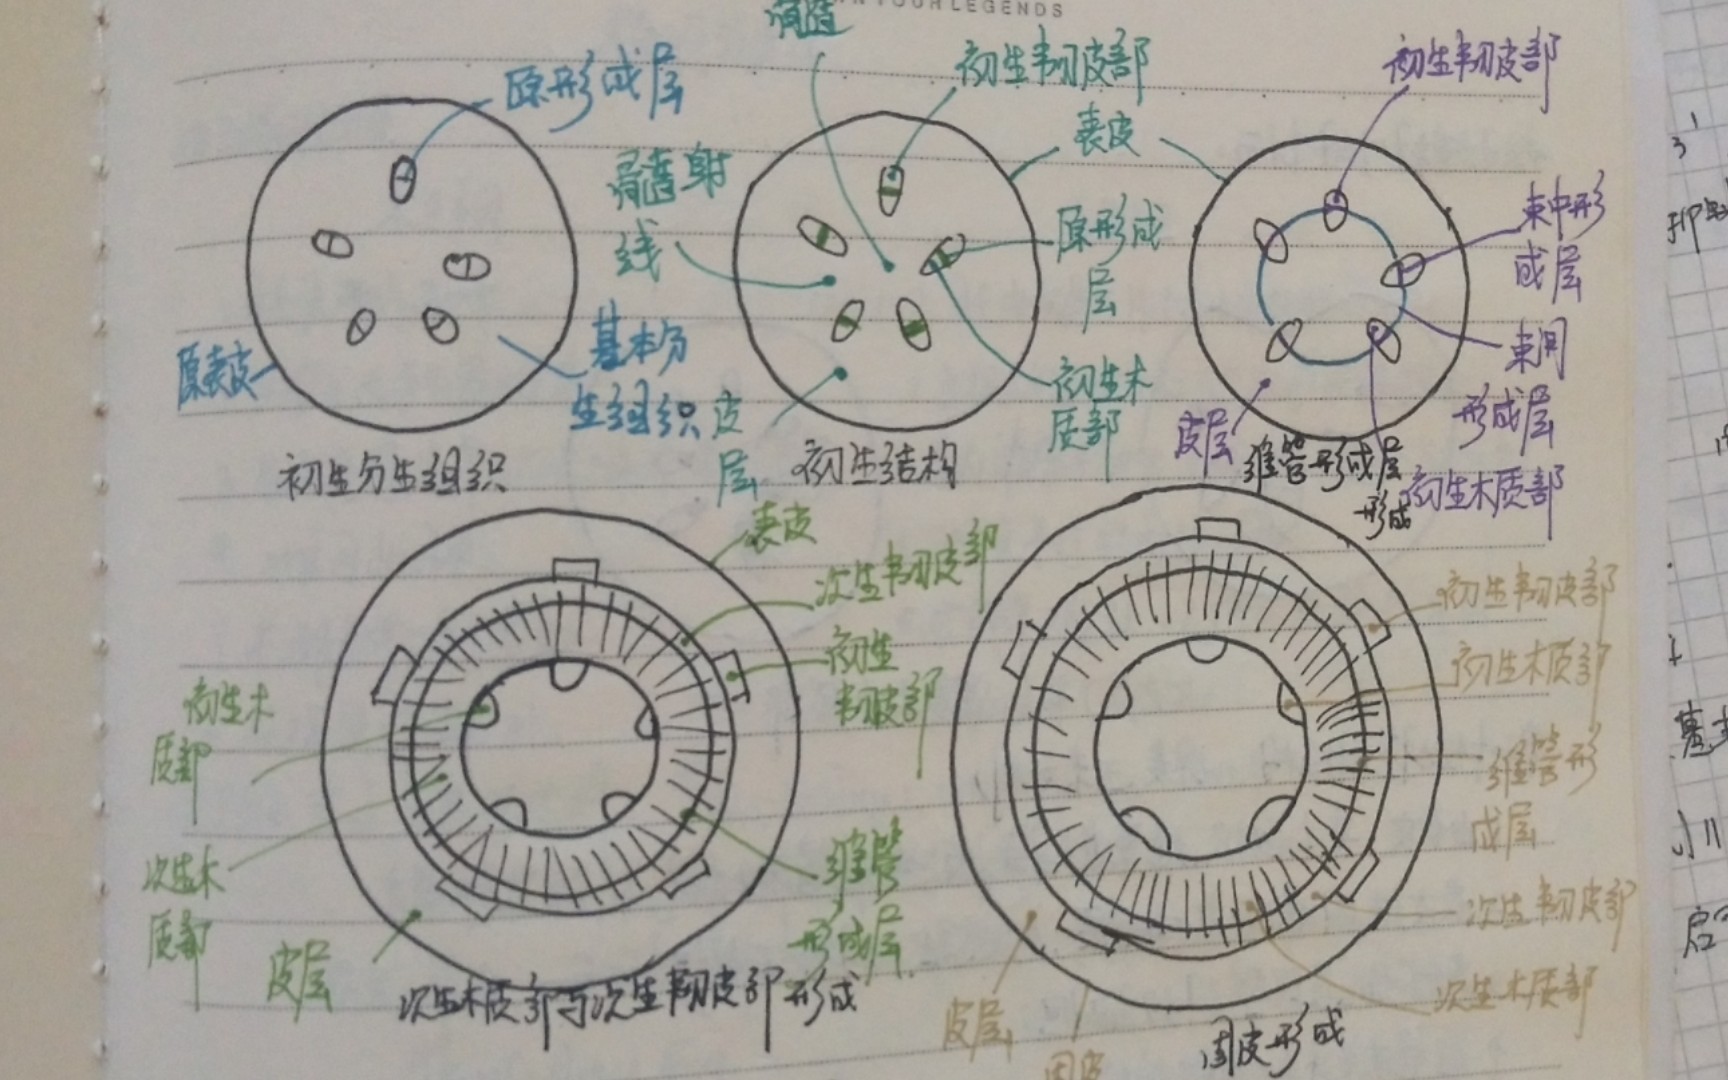 YOUR LEGENDS
髓
原形成层
初生韧皮部
初生韧皮部
表皮
髓射
线
原形成
层
束中形
成层
基本分
生组织
原表皮
束间
形成层
初生木
质部
皮
层
皮层
初生分生组织
初生结构
维管形成层
形成
初生木质部
表皮
次生韧皮部
初生
韧皮部
初生木
质部
次生木
质部
维管
形成层
皮层
次生木质部与次生韧皮部形成
初生韧皮部
初生木质部
维管形
成层
次生韧皮部
次生木质部
皮层
周皮
周皮形成